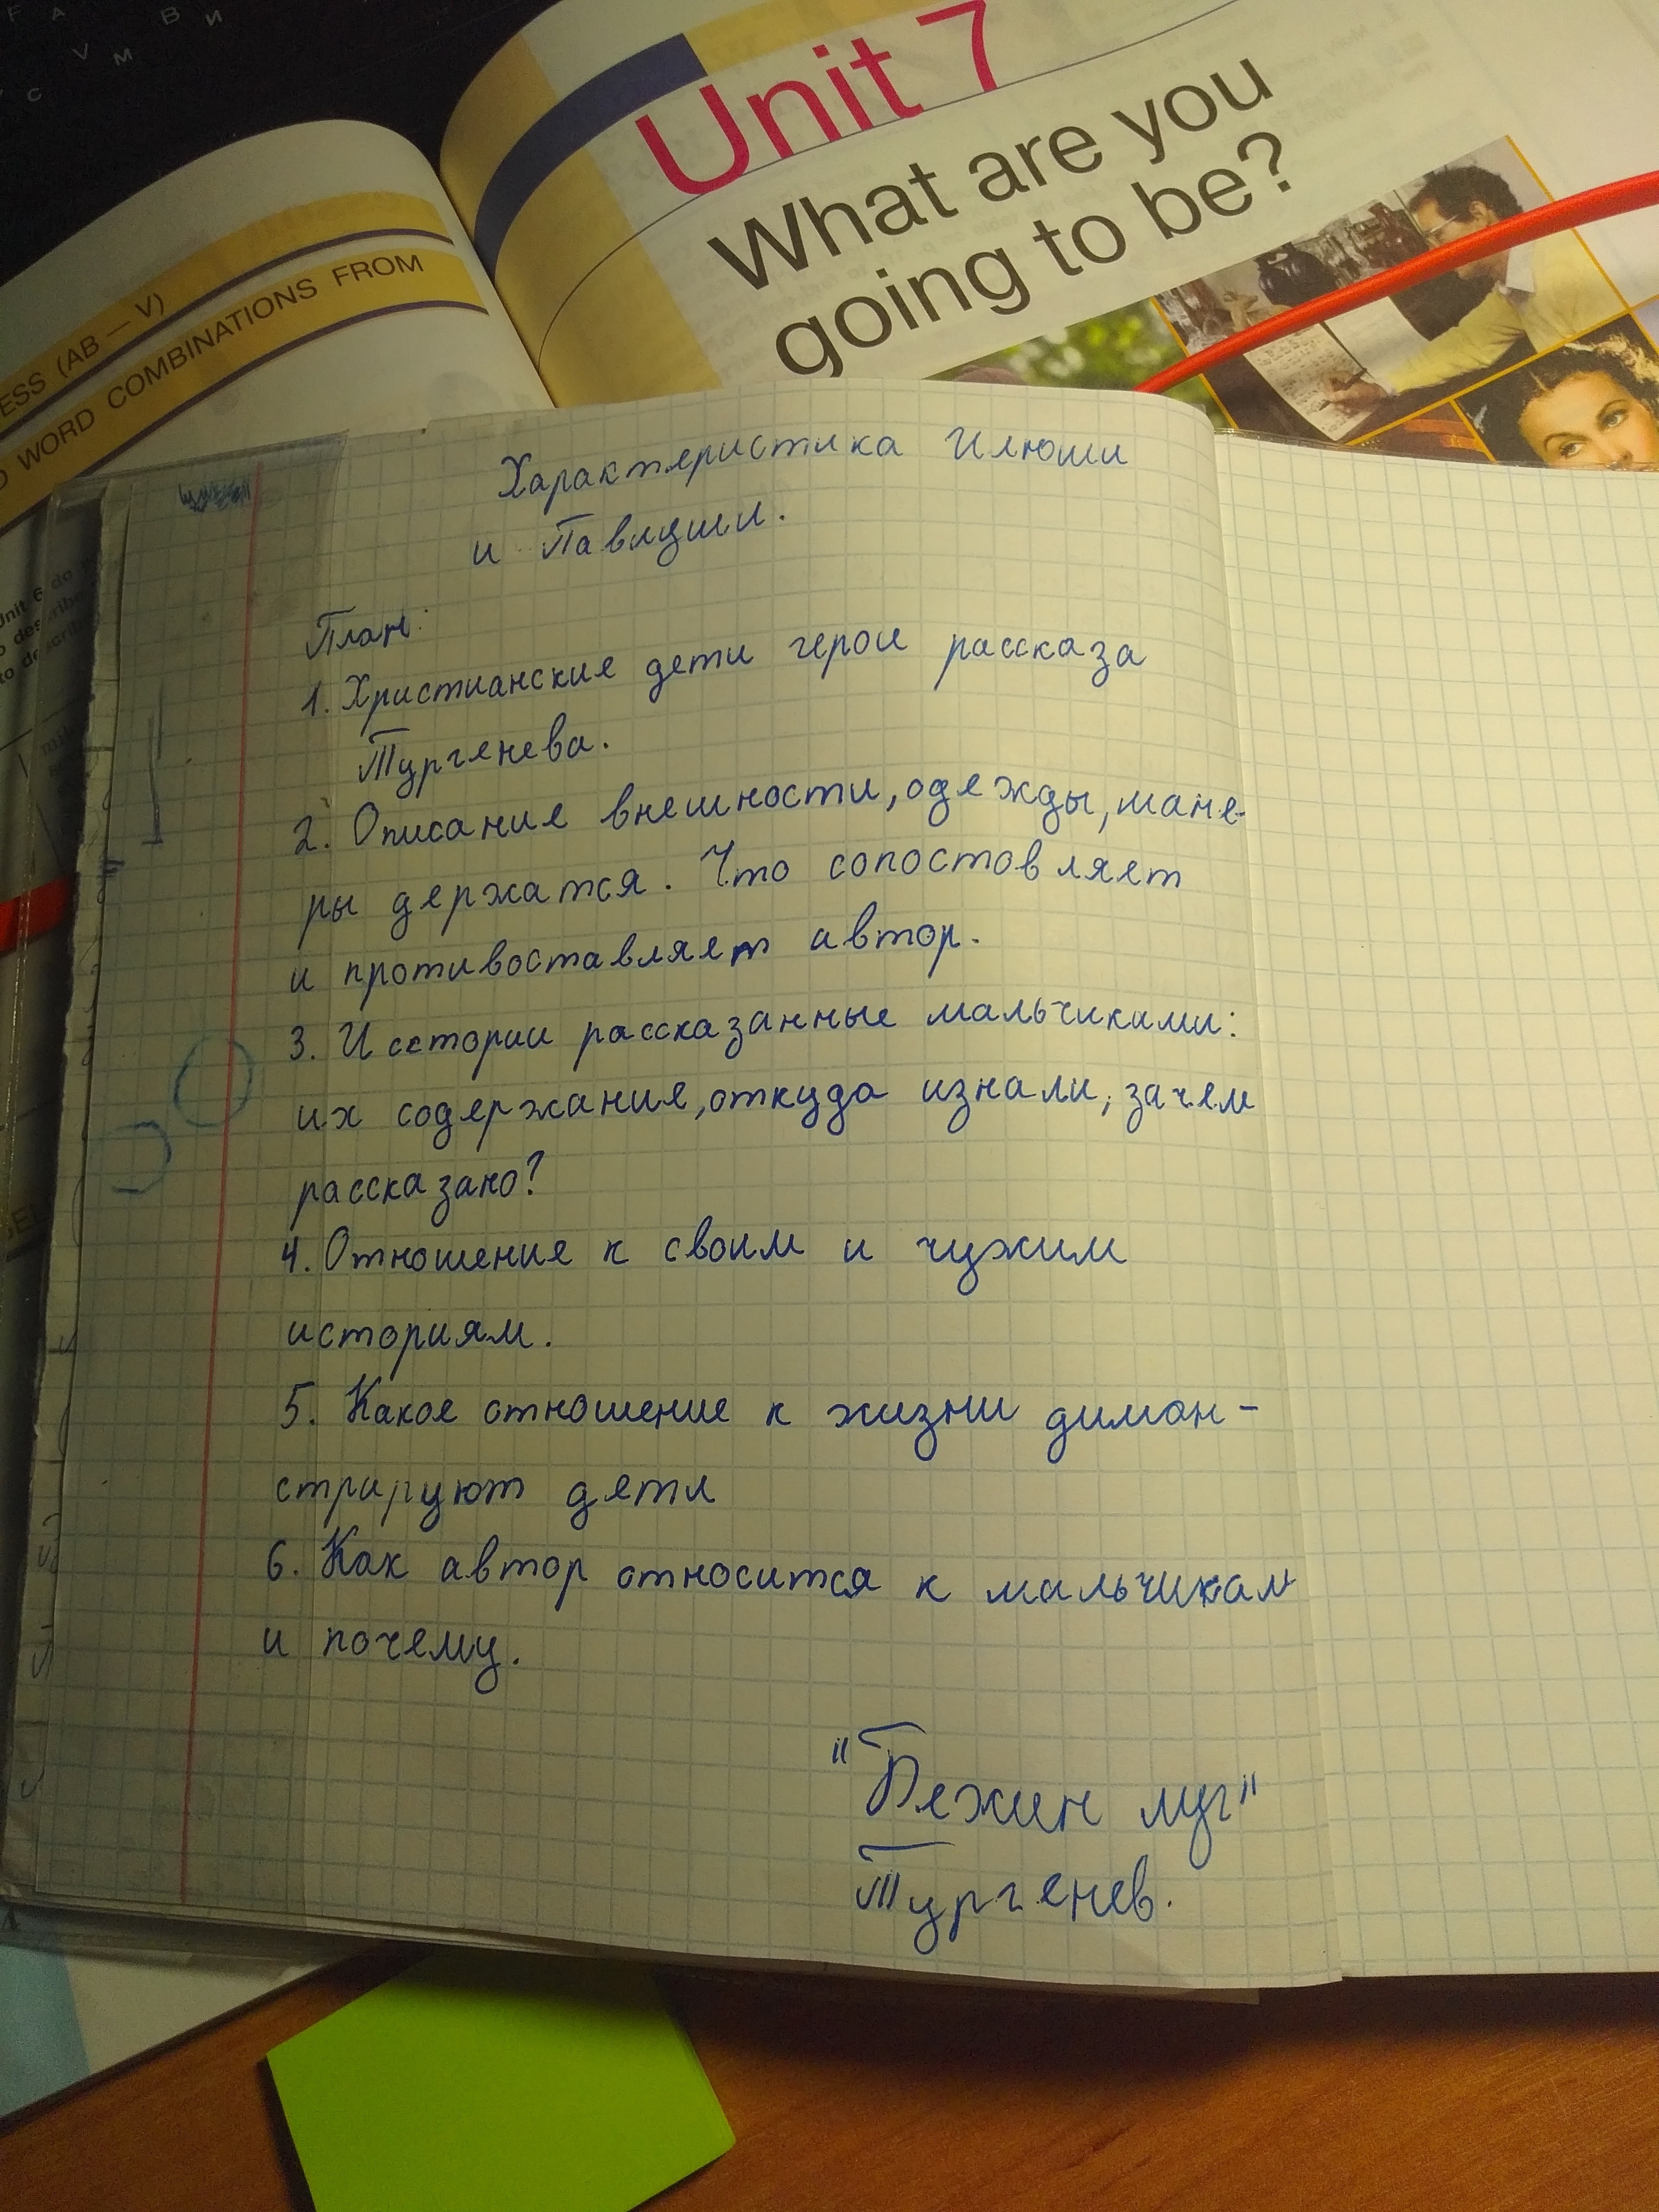 Unit 7
What are you
going to be?
ESS (AB — V)
WORD COMBINATIONS FROM
Характеристика Илюши
и Павлуши.
План:
1. Христианские дети герои рассказа
Тургенева.
2. Описание внешности, одежды, мане-
ры держатся. Что сопостовляет
и противоставляет автор.
3. Исстории рассказанные мальчиками:
их содержание, откуда изнали, зачем
рассказано?
4. Отношение к своим и чужим
историям.
5. Какое отношение к жизни димон-
стрируют дети
6. Как автор относится к мальчикам
и почему.
"Бежин луг"
Тургенев.